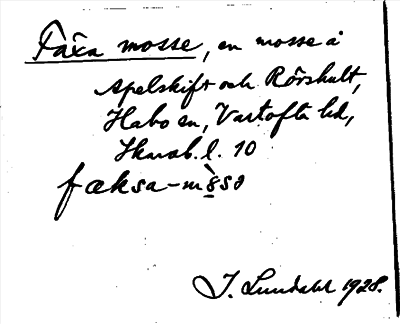 Faxa mosse, en mosse å
Apelskift och Rörshult,
Habo sn, Vartofta hd,
Skarab. l. 10
fæksa-mòsə
J. Lundahl 1928.